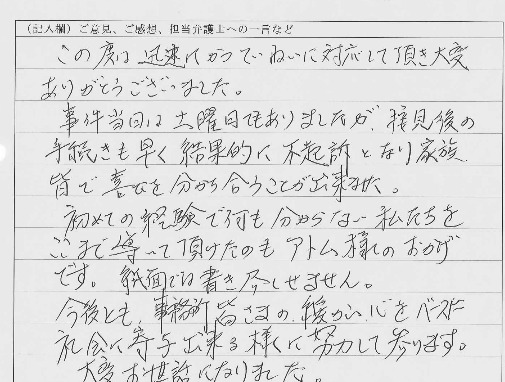 （記入欄）ご意見、ご感想、担当弁護士への一言など
この度は迅速にかつていねいに対応して頂き大変
ありがとうございました。
事件当日は土曜日でもありましたが、接見後の
手続きも早く結果的に不起訴となり家族
皆で喜びを分かち合うことが出来ました。
初めての経験で何も分からない私たちを
ここまで導いて頂けたのもアトム様のおかげ
です。紙面では書き尽しせません。
今後とも、事務所皆さまの、暖かい心をベースに
社会に寄与出来る様に努力して参ります。
大変お世話になりました。